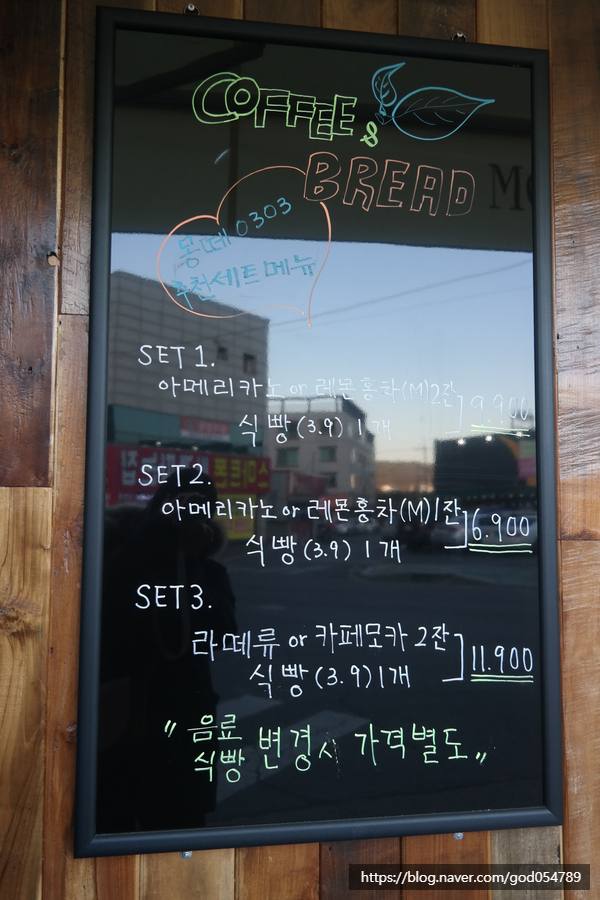 COFFEE &
BREAD
몽떼 0303
추천세트메뉴
SET 1.
아메리카노 or 레몬홍차(M)2잔
식빵 (3.9) 1개 ] 9.900
SET2.
아메리카노 or 레몬홍차(M)1잔
식빵 (3.9) 1개 ] 6.900
SET 3.
라떼류 or 카페모카 2잔
식빵 (3.9)1개 ] 11.900
"음료
식빵 변경시 가격별도"
https://blog.naver.com/god054789